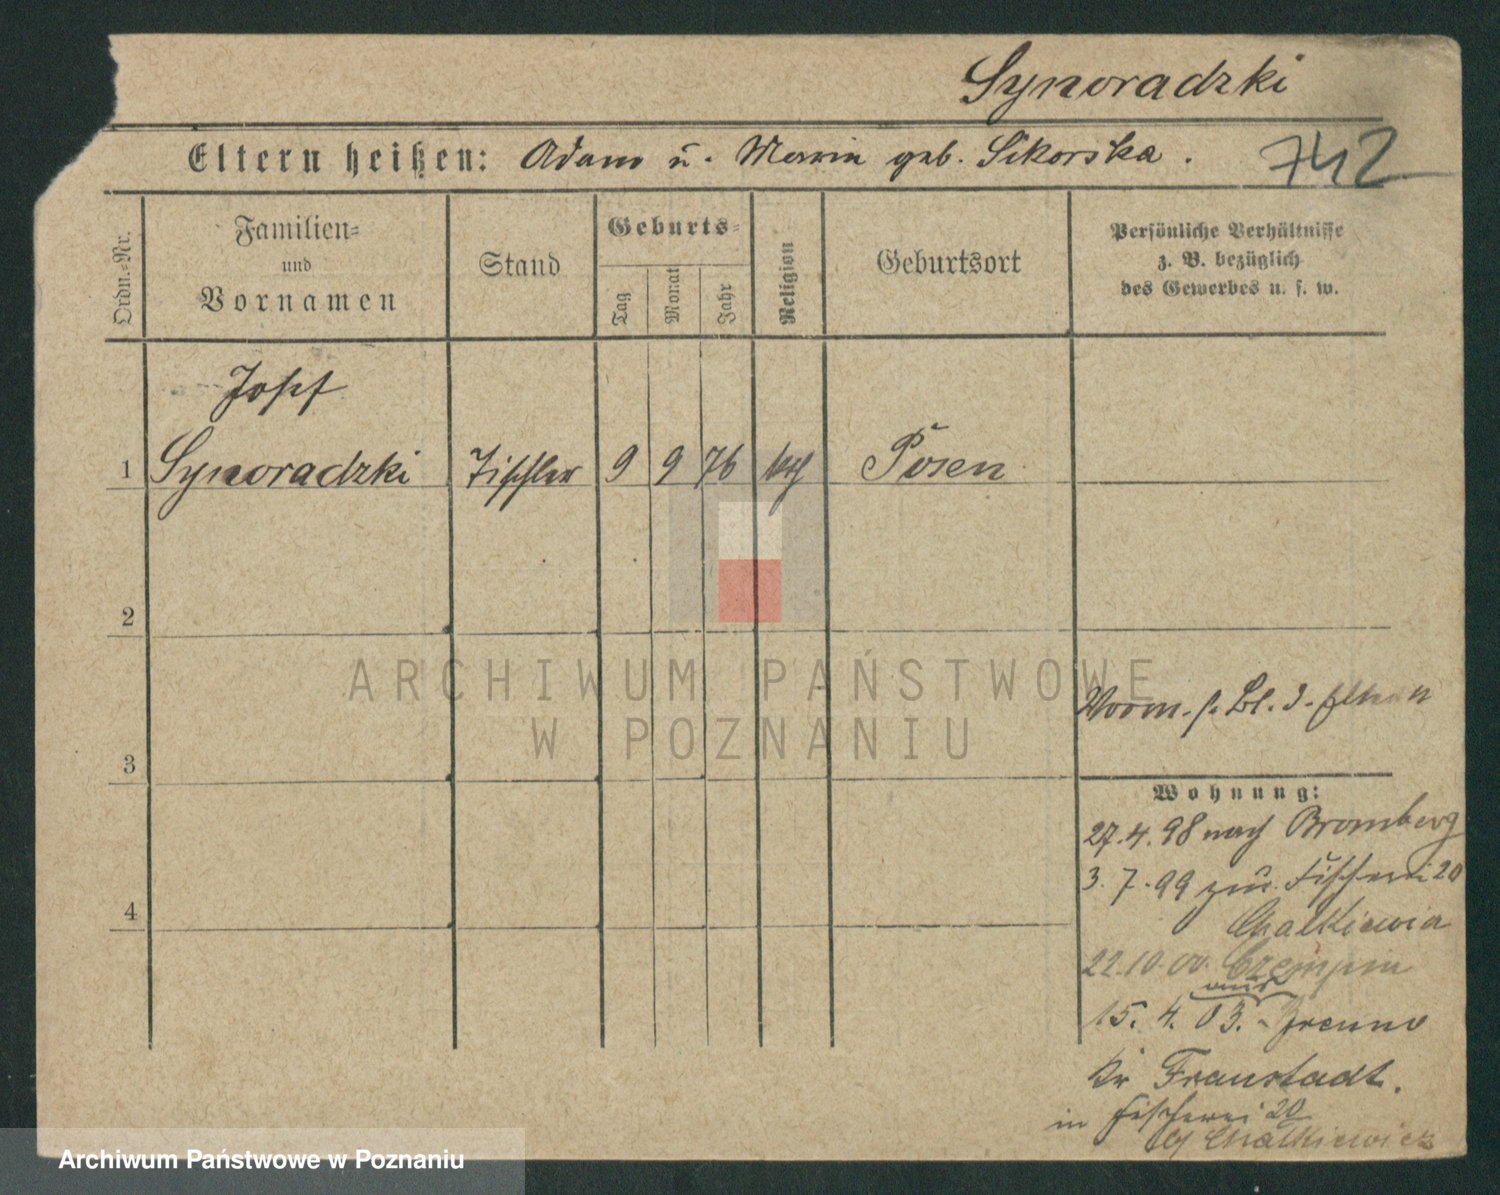 Synoradzki
Eltern heißen: Adam u. Maria geb. Sikorska.
742
Ordn.-Nr.
Familien-
und
Vornamen
Stand
Geburts-
Tag
Monat
Jahr
Religion
Geburtsort
Persönliche Verhältnisse
z. B. bezüglich
des Gewerbes u. s. w.
Josef
1 Synoradzki Tischler 9 9 76 kth Posen
2
ARCHIWUM PAŃSTWOWE
W POZNANIU
Vorm. s. Bl. d. Eltern
3
Wohnung:
27.4.98 nach Bromberg
3.7.99 zur. Fischerei 20
4
22.10.00. Czempin
aus
15.4.03.
Kr Fraustadt.
in Fischerei 20
Chalkiewicz
Archiwum Państwowe w Poznaniu